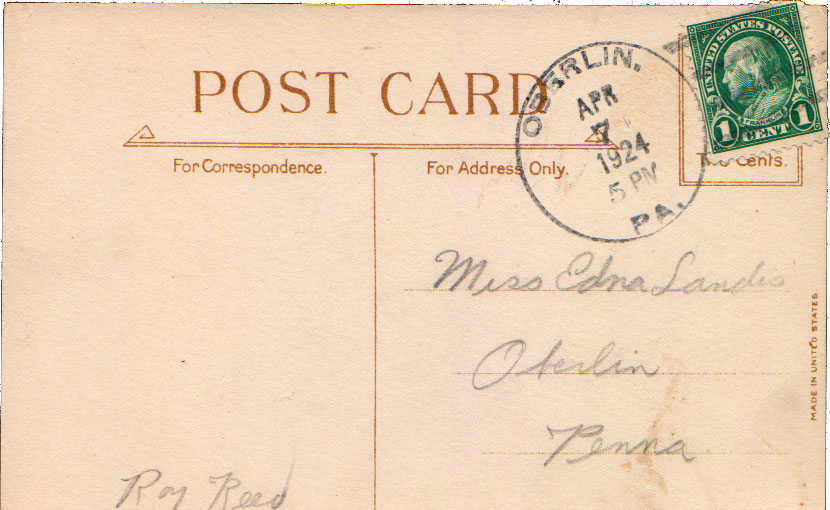 POST CARD
OBERLIN.
APR
7
1924
5 PM
PA.
UNITED STATES POSTAGE
FRANKLIN
1 CENT 1
Cents.
For Correspondence.
For Address Only.
Miss Edna Landis
Oberlin
Penna
MADE IN UNITED STATES
Roy Reed